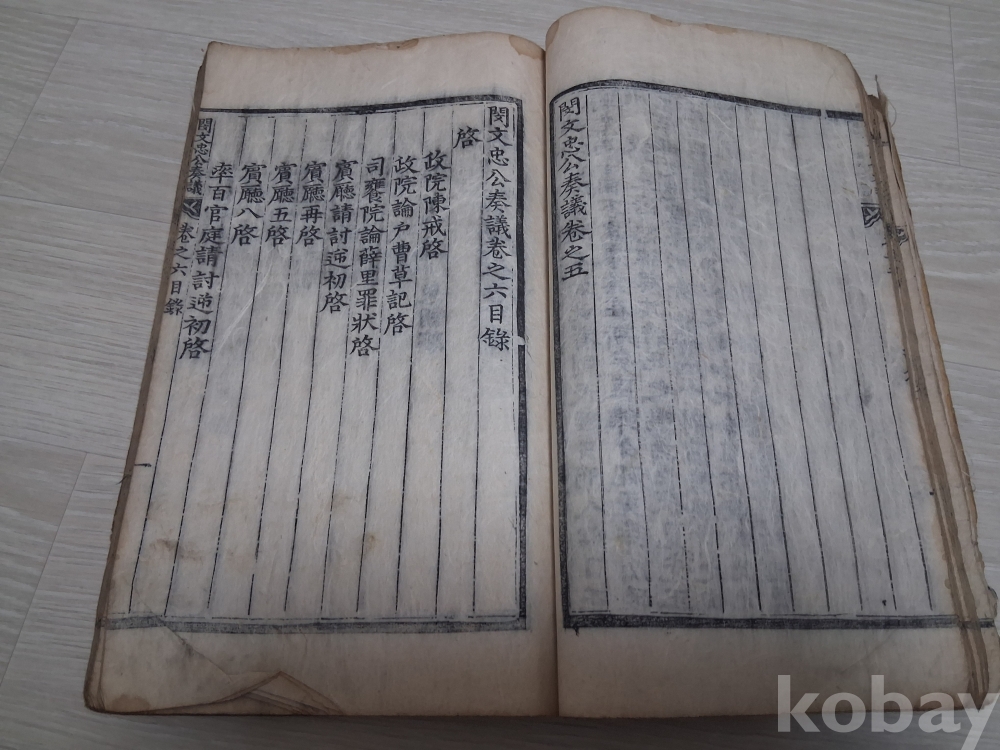 閔文忠公奏議卷之五
閔文忠公奏議卷之六目錄
啓
政院陳戒啓
政院論戶曹草記啓
司饔院論薛里罪狀啓
賓廳請討逆初啓
賓廳再啓
賓廳五啓
賓廳八啓
率百官庭請討逆初啓
閔文忠公奏議 卷之六目錄
kobay